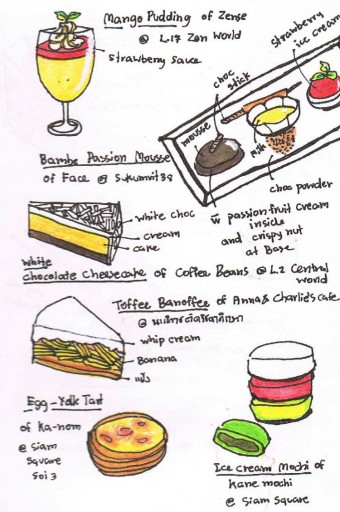 Mango Pudding of Zense
@ L.17 Zen World
strawberry sauce
strawberry
ice cream
choc
stick
mousse
milk
choc powder
Bambe Passion Mousse
of Face @ Sukumvit 39
w̄ passionfruit cream
inside
and crispy nut
at Base
white choc
cream
cake
White
chocolate cheesecake of Coffee Beans @ L2 Central
World
Toffee Banoffee of Anna & Charlie's cafe
@
whip cream
Banana
แป้ง
Egg-Yolk Tart
of Ka-nom
@ Siam
Square
Soi 3
Ice cream Mochi of
Kane mochi
@ Siam Square